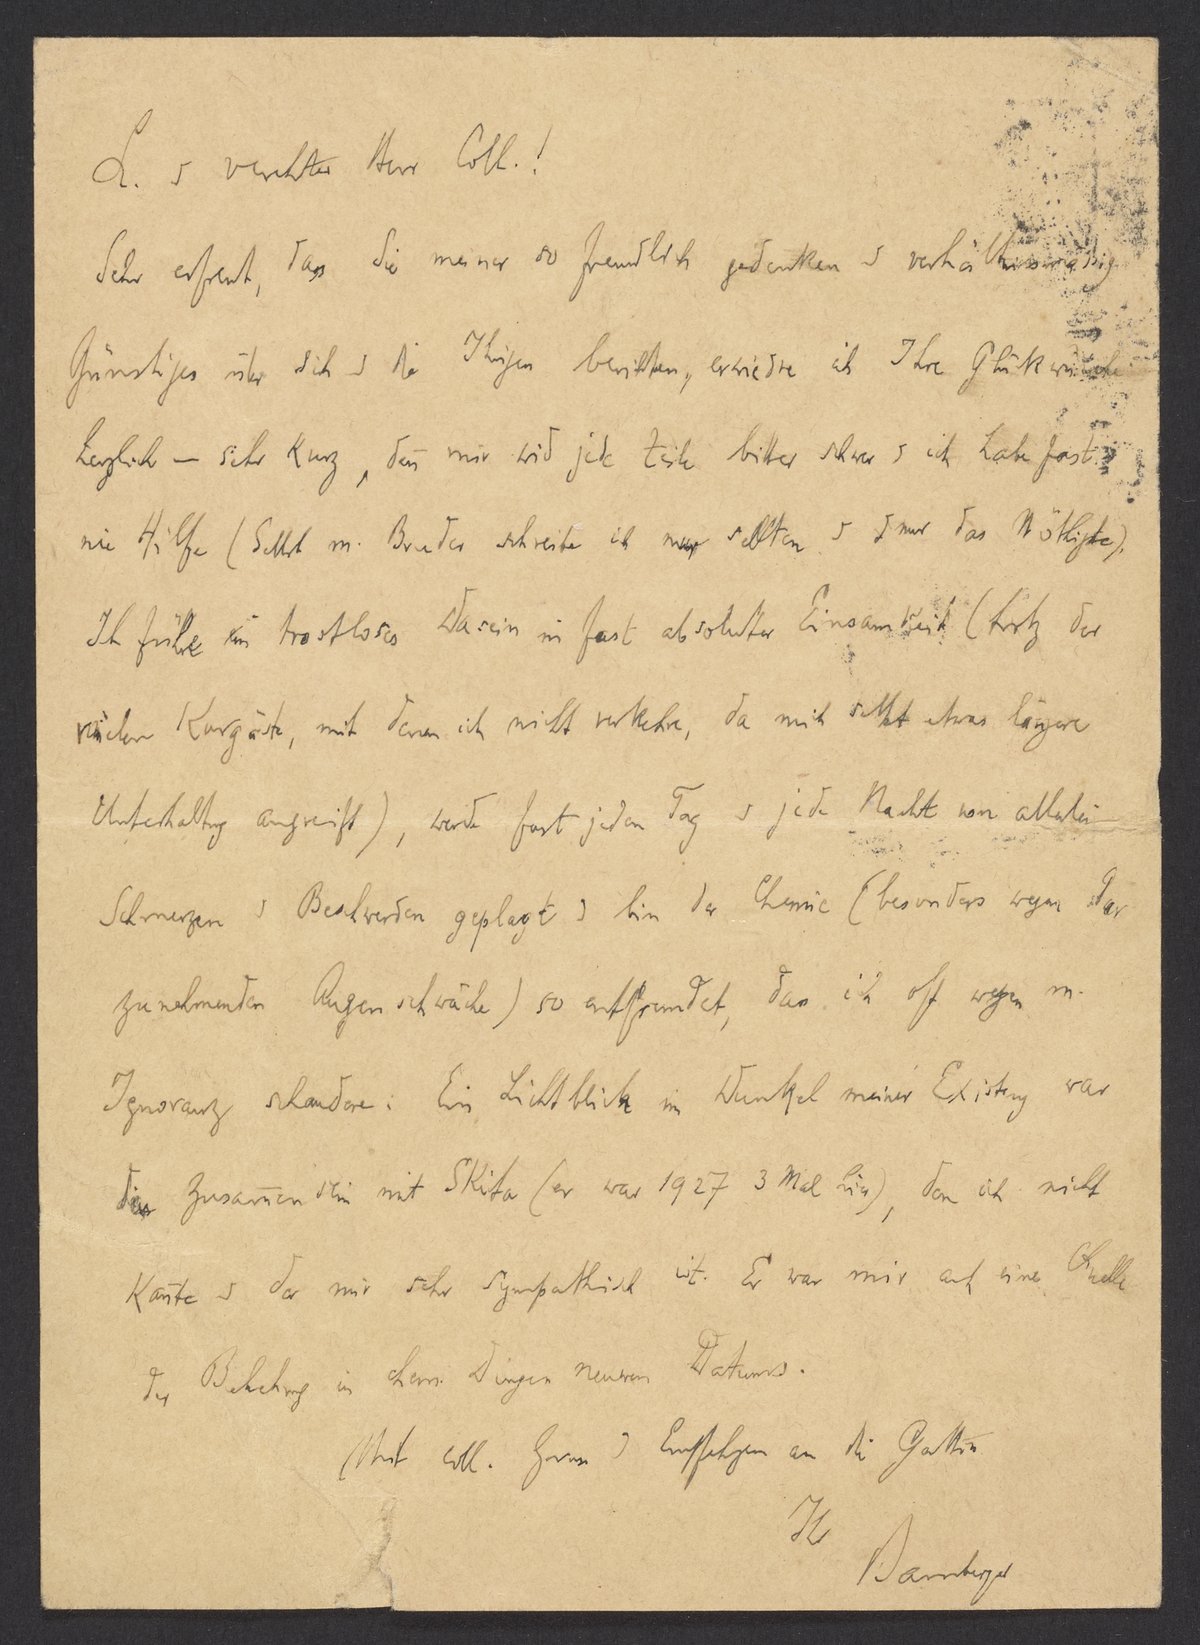 L. u verehrter Herr Coll.!
Sehr erfreut, dass Sie meiner so freundlich gedenken u verhältnissmässig
Günstiges über sich u die Ihrigen berichten, erwiedre ich Ihre Glückwünsche
herzlich — sehr kurz, deñ mir wird jede Zeile bitter schwer u ich habe fast
nie Hilfe (Selbst m. Bruder schreibe ich nur selten u nur das Nöthigste).
Ich führe ein trostloses Dasein in fast absoluter Einsamkeit (trotz der
vielen Kurgäste, mit denen ich nicht verkehre, da mich selbst etwas längere
Unterhaltung angreift), werde fast jeden Tag u jede Nacht von allerlei
Schmerzen u Beschwerden geplagt u bin der Chemie (besonders wegen der
zunehmenden Augenschwäche) so entfremdet, dass ich oft wegen m.
Ignoranz schaudere. Ein Lichtblick im Dunkel meiner Existenz war
das Zusam̄ensein mit Skita (er war 1927 3 Mal hier), den ich nicht
kan̄te u der mir sehr sympathisch ist. Er war mir auch eine Quelle
der Belehrung in chem. Dingen neueren Datums.
Mit coll. Gruss u Empfehlgen an die Gattin
Ihr
Bamberger